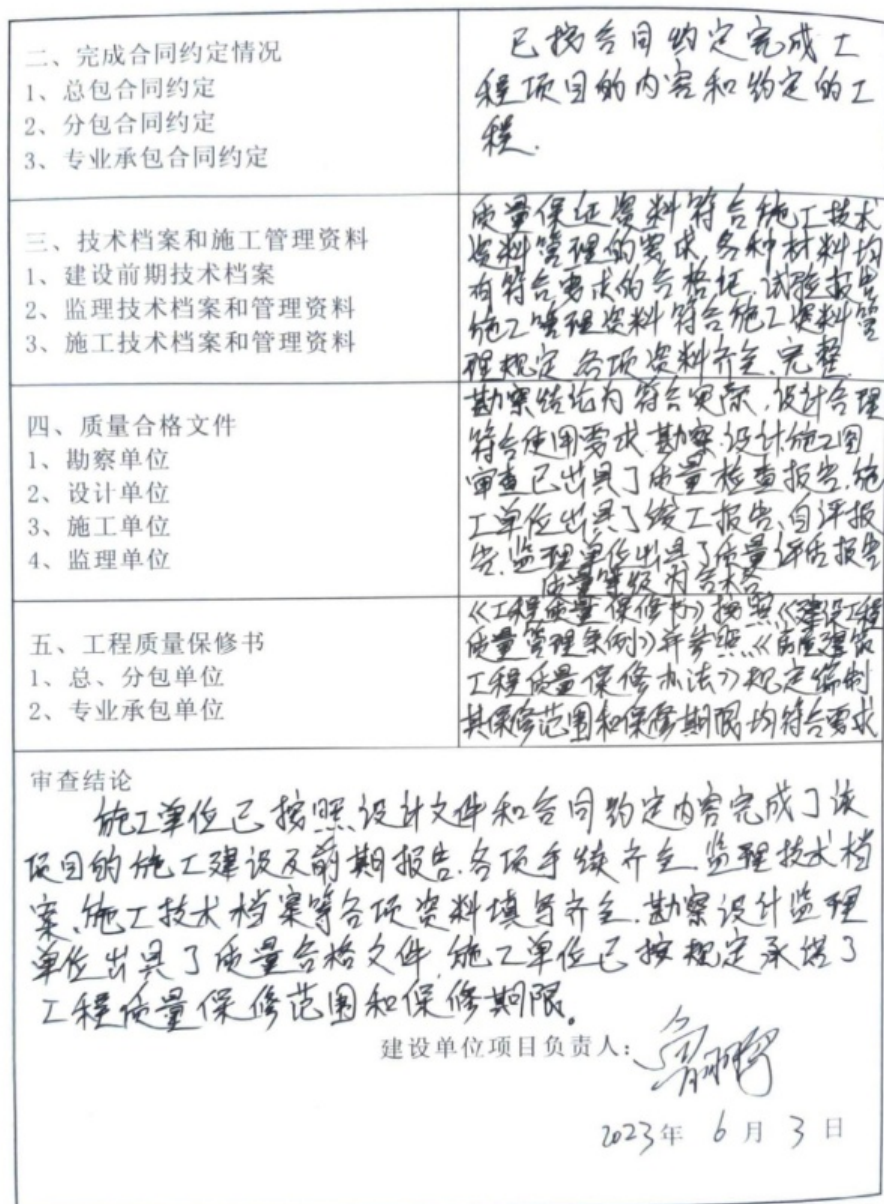 二、完成合同约定情况
1、总包合同约定
2、分包合同约定
3、专业承包合同约定
已按合同约定完成工
程项目的内容和约定的工
程.
三、技术档案和施工管理资料
1、建设前期技术档案
2、监理技术档案和管理资料
3、施工技术档案和管理资料
质量保证资料符合施工技术
资料管理的要求,各种材料均
有符合要求的合格证、试验报告
施工管理资料符合施工资料管
理规定,各项资料齐全、完整.
四、质量合格文件
1、勘察单位
2、设计单位
3、施工单位
4、监理单位
勘察结论为符合实际,设计合理
符合使用要求,勘察、设计施工图
审查已出具了质量检查报告,施
工单位出具了竣工报告、自评报
告,监理单位出具了质量评估报告
质量等级为合格
五、工程质量保修书
1、总、分包单位
2、专业承包单位
《工程质量保修书》按照《建设工程
质量管理条例》并参照《房屋建筑
工程质量保修办法》规定编制
其保修范围和保修期限均符合要求
审查结论
施工单位已按照设计文件和合同约定内容完成了该
项目的施工建设及前期报告.各项手续齐全.监理技术档
案、施工技术档案等各项资料填写齐全.勘察设计监理
单位出具了质量合格文件,施工单位已按规定承诺了
工程质量保修范围和保修期限。
建设单位项目负责人:
2023年 6 月 3 日